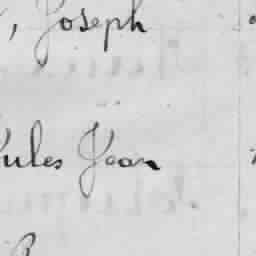 , Joseph
Jules Jean